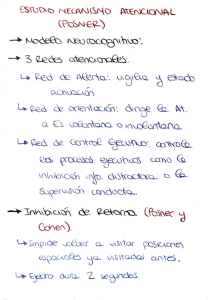 ESTUDIO MECANISMO ATENCIONAL
(POSNER)
→ Modelo Neurocognitivo:
→ 3 Redes atencionales:
↳ Red de Alerta: vigilia y estado
activación
↳ Red de orientación: dirige la At.
a Es voluntaria o involuntaria.
↳ Red de Control Ejecutivo: controla
los procesos ejecutivos como la
inhibición info. distractora o la
supervisión conducta.
→ Inhibición de Retorno (Posner y
Cohen).
↳ Impide volver a visitar posiciones
espaciales ya visitadas antes.
↳ Efecto dura 2 segundos.